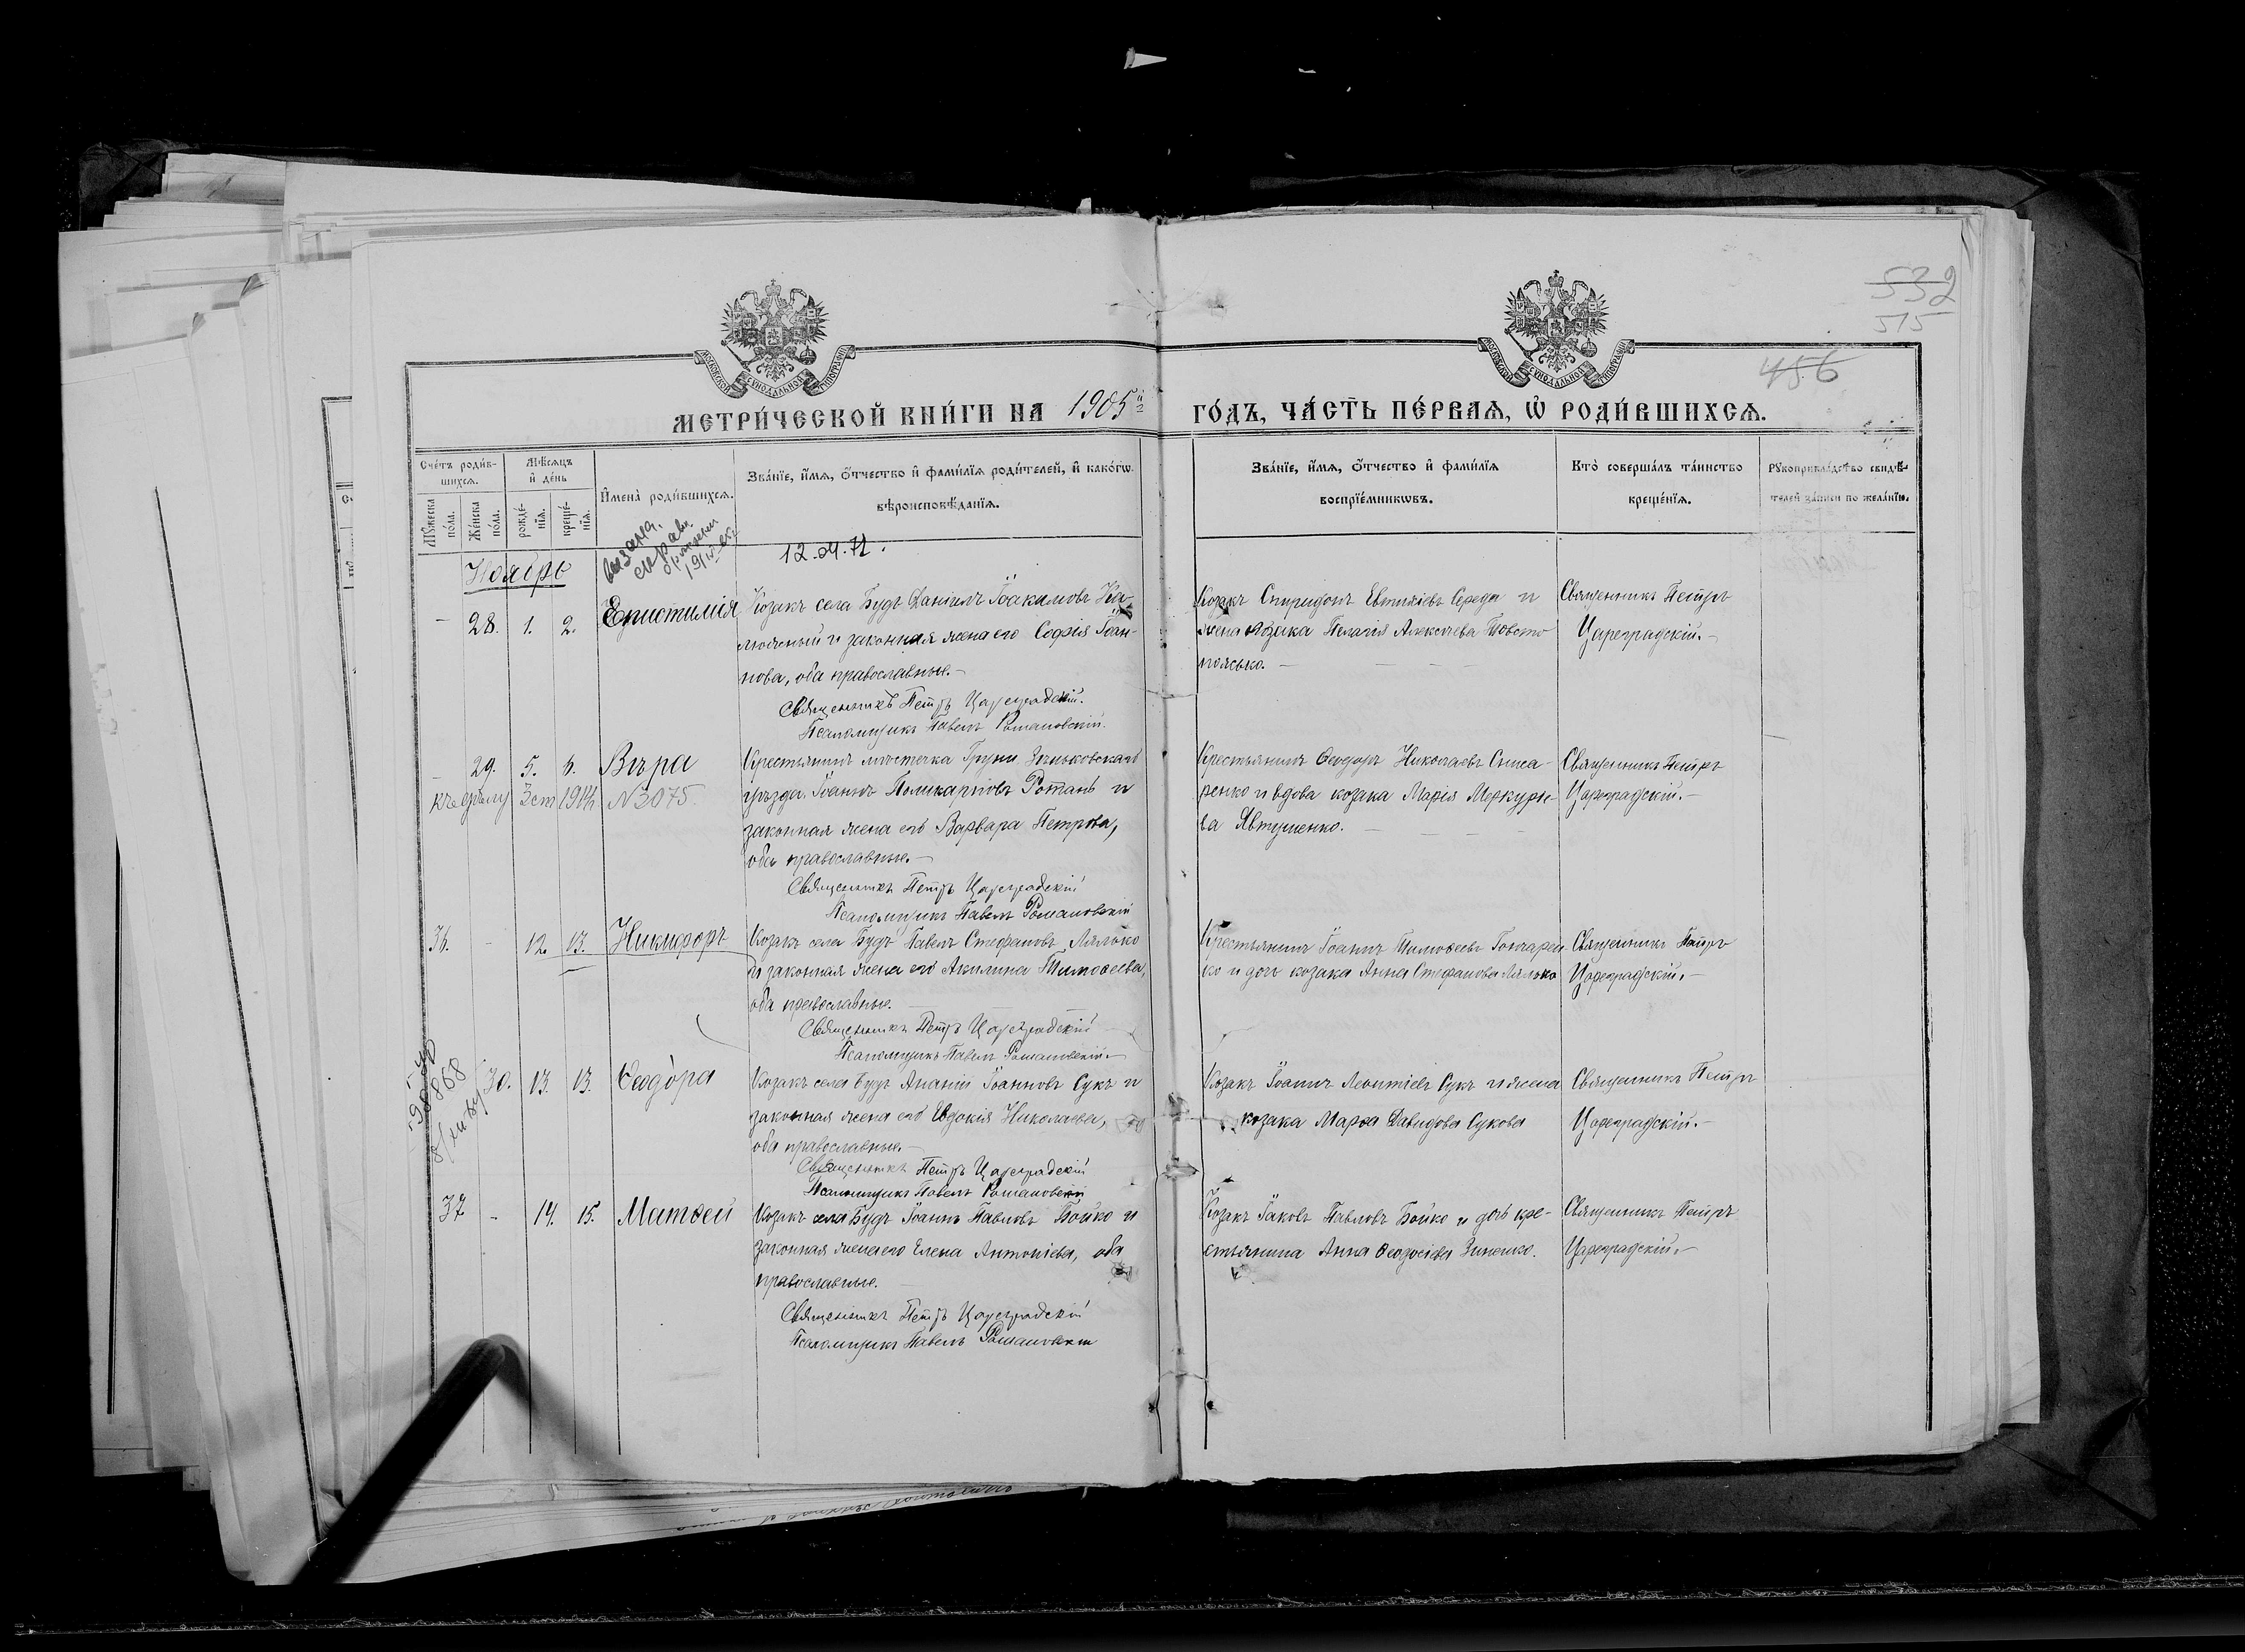 532
515
456
МОСКОВСКОЙ СѴНОДАЛЬНОЙ ТИПОГРАФІИ
МОСКОВСКОЙ СѴНОДАЛЬНОЙ ТИПОГРАФІИ
МЕТРИ́ЧЕСКОЙ КНИ́ГИ НА 1905й ГО́ДЪ, ЧА́СТЬ ПЕ́РВАѦ, Ѡ РОДИ́ВШИХСѦ.
Сче́тъ роди́в-
шихсѧ.
Мꙋ́жеска по́ла.
Же́нска по́ла.
Мѣ́сѧцъ
и де́нь
рожде́-
нїѧ.
креще́-
нїѧ.
Имена̀ роди́вшихсѧ.
Зва́нїе, и́мѧ, о́тчество и фами́лїѧ роди́телей, и како́гѡ
вѣроисповѣ́данїѧ.
Зва́нїе, и́мѧ, о́тчество и фами́лїѧ
воспрїе́мникѡвъ.
Кто̀ соверша́лъ та́инство
креще́нїѧ.
Рꙋкоприкла́дство свидѣ́-
телей за́писи по жела́нїю.
12.04.71.
Ноябрь
– 28. 1. 2. Епистимія
Козакъ села Будъ Даніилъ Іоакимовъ
и законная жена его Софія Іоан-
нова, оба православные.–
Священникъ Петръ Цареградскій.
Псаломщикъ Павелъ Романовскій.
Козакъ Спиридонъ Евтихіевъ Середа и
жена козака Пелагія Алексіева Товсто
поясько.
Священникъ Петръ
Цареградскій.–
– 29. 5. 6. Вѣра
къ дѣлу 3 ст 1914 №3075.
Крестьянинъ мѣстечка Груни Зѣньковскаго
уѣзда Іоаннъ Поликарповъ Ротань и
законная жена его Варвара Петрова,
оба православные.–
Священникъ Петръ Цареградскій
Псаломщикъ Павелъ Романовскій
Крестьянинъ Ѳеодоръ Николаевъ Слюса-
ренко и вдова козака Марія Меркурье-
ва Явтушенко.
Священникъ Петръ
Цареградскій.–
36. – 12. 13. Никифоръ
Козакъ села Будъ Павелъ Стефановъ Лялько
и законная жена его Акилина Тимоѳеева,
оба православные.
Священникъ Петръ Цареградскій
Псаломщикъ Павелъ Романовскій.–
Крестьянинъ Іоаннъ Тимоѳеевъ Гончарен
ко и дочь козака Анна Стефанова Лялько
Священникъ Петръ
Цареградскій.–
30. 13. 13. Ѳеодора
Козакъ села Будъ Ананій Іоанновъ Сукъ и
законная жена его Евдокія Николаева,
оба православные.–
Священникъ Петръ Цареградскій
Псаломщикъ Павелъ Романовскій
Козакъ Іоаннъ Леонтіевъ Сукъ и жена
козака Марѳа Давидова Сукова
Священникъ Петръ
Цареградскій.–
37 – 14. 15. Матѳей
Козакъ села Будъ Іоаннъ Павловъ Бойко и
законная жена его Елена Антоніева, оба
православные.
Священникъ Петръ Цареградскій
Псаломщикъ Павелъ Романовскій
Козакъ Іаковъ Павловъ Бойко и дочь кре-
стьянина Анна Ѳеодосіева Зиненко.
Священникъ Петръ
Цареградскій.–